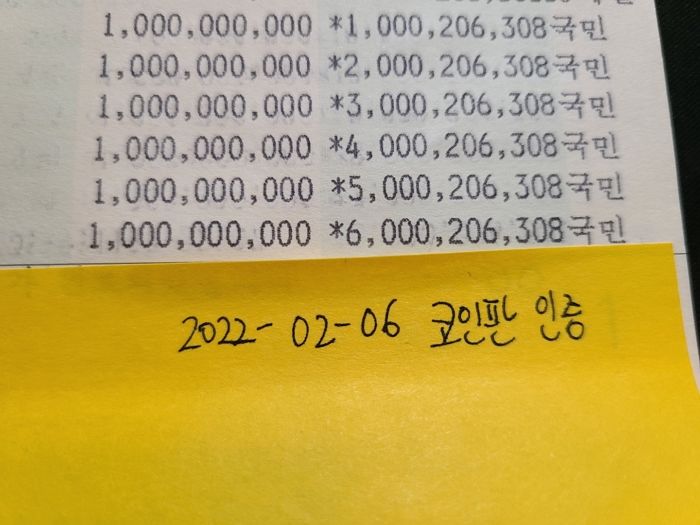 1,000,000,000 *1,000,206,308국민
1,000,000,000 *2,000,206,308국민
1,000,000,000 *3,000,206,308국민
1,000,000,000 *4,000,206,308국민
1,000,000,000 *5,000,206,308국민
1,000,000,000 *6,000,206,308국민
2022-02-06 코인판 인증